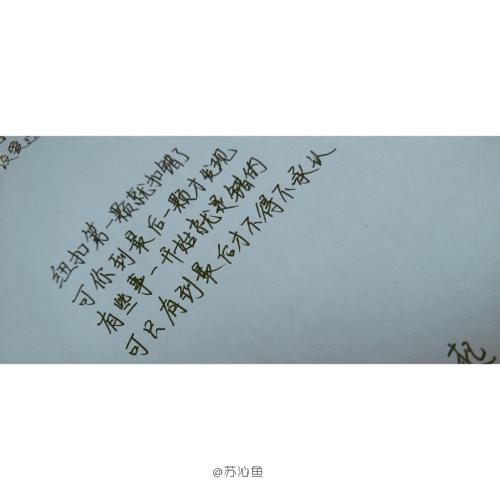 纽扣第一颗就扣错了
可你到最后一颗才发现
有些事一开始就是错的
可只有到最后才不得不承认
@苏沁鱼